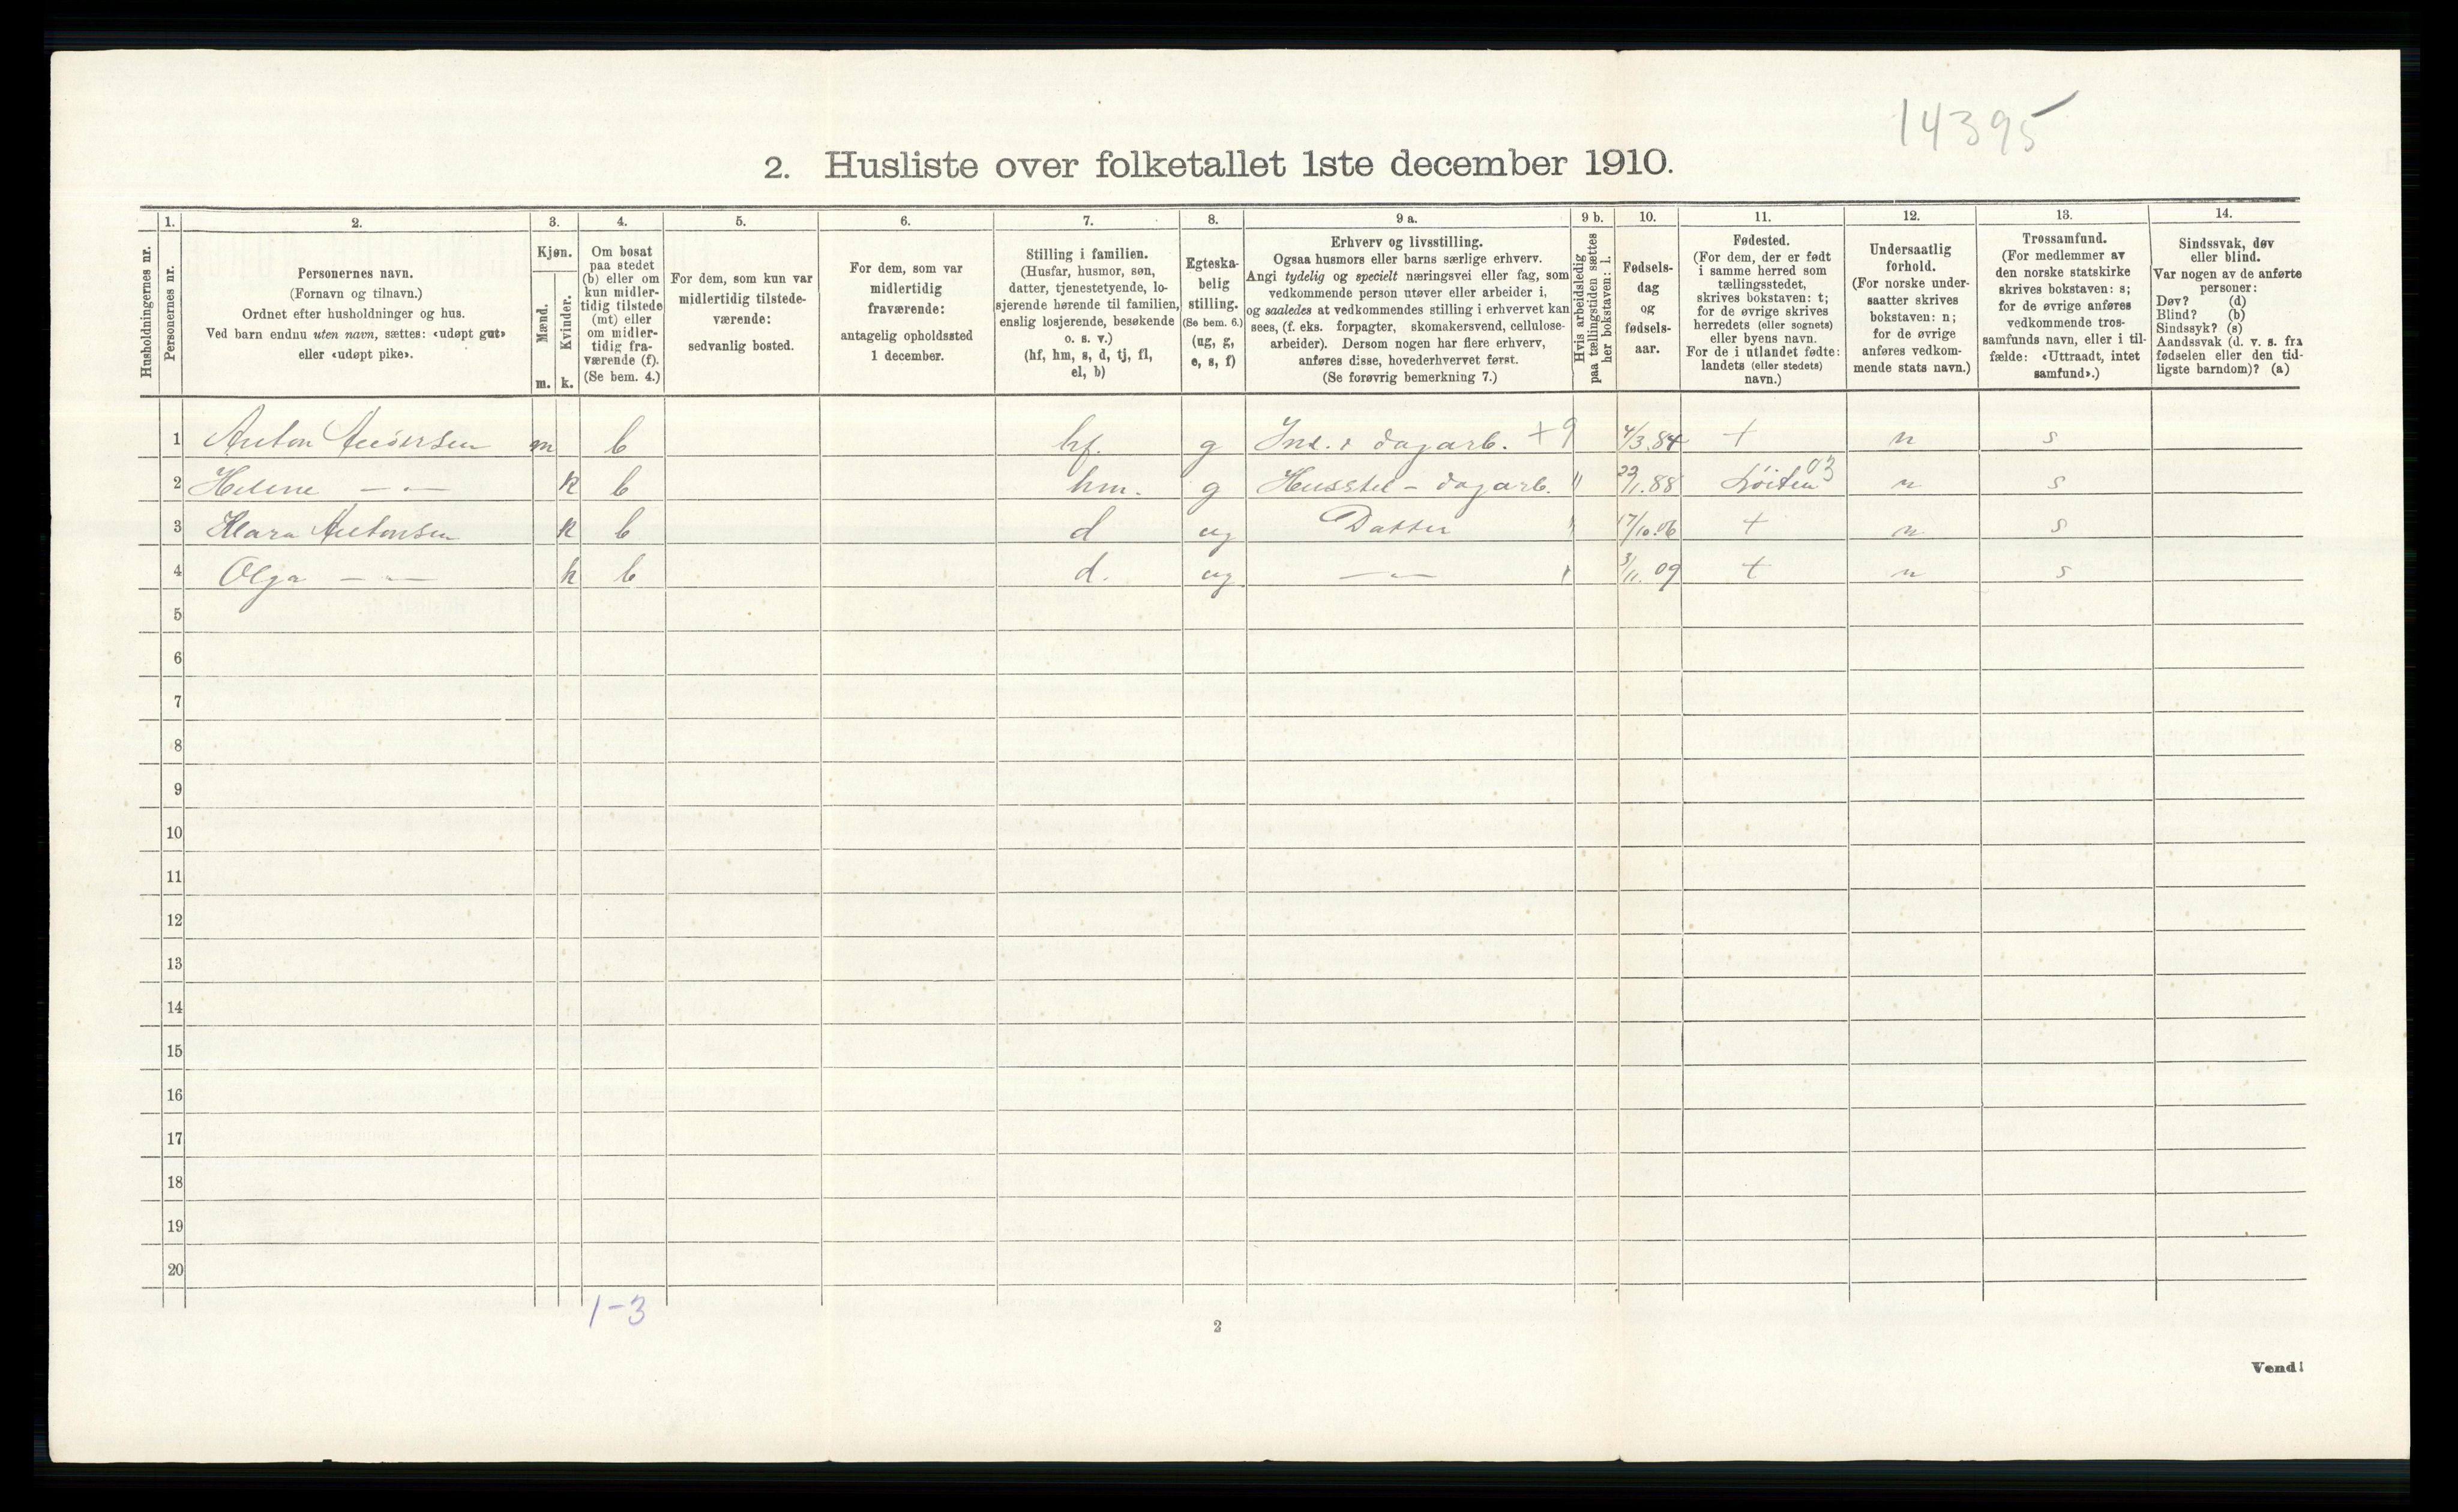 14395
2. Husliste over folketallet 1ste december 1910.
Husholdningernes nr.
1.
Personernes nr.
2.
Personernes navn.
(Fornavn og tilnavn.)
Ordnet efter husholdninger og hus.
Ved barn endnu uten navn, sættes: «udøpt gut»
eller «udøpt pike».
3.
Kjøn.
Mænd.
m.
Kvinder.
k.
4.
Om bosat
paa stedet
(b) eller om
kun midler-
tidig tilstede
(mt) eller
om midler-
tidig fra-
værende (f).
(Se bem. 4.)
5.
For dem, som kun var
midlertidig tilstede-
værende:
sedvanlig bosted.
6.
For dem, som var
midlertidig
fraværende:
antagelig opholdssted
1 december.
7.
Stilling i familien.
(Husfar, husmor, søn,
datter, tjenestetyende, lo-
sjerende hørende til familien,
enslig losjerende, besøkende
o. s. v.)
(hf, hm, s, d, tj, fl,
el, b)
8.
Egteska-
belig
stilling.
(Se bem. 6.)
(ug, g,
e, s, f)
9 a.
Erhverv og livsstilling.
Ogsaa husmors eller barns særlige erhverv.
Angi tydelig og specielt næringsvei eller fag, som
vedkommende person utøver eller arbeider i,
og saaledes at vedkommendes stilling i erhvervet kan
sees, (f. eks. forpagter, skomakersvend, cellulose-
arbeider). Dersom nogen har flere erhverv,
anføres disse, hovederhvervet først.
(Se forøvrig bemerkning 7.)
9 b.
Hvis arbeidsledig
paa tællingstiden sættes
her bokstaven: l.
10.
Fødsels-
dag
og
fødsels-
aar.
11.
Fødested.
(For dem, der er født
i samme herred som
tællingsstedet,
skrives bokstaven: t;
for de øvrige skrives
herredets (eller sognets)
eller byens navn.
For de i utlandet fødte:
landets (eller stedets)
navn.)
12.
Undersaatlig
forhold.
(For norske under-
saatter skrives
bokstaven: n;
for de øvrige
anføres vedkom-
mende stats navn.)
13.
Trossamfund.
(For medlemmer av
den norske statskirke
skrives bokstaven: s;
for de øvrige anføres
vedkommende tros-
samfunds navn, eller i til-
fælde: «Uttraadt, intet
samfund».)
14.
Sindssvak, døv
eller blind.
Var nogen av de anførte
personer:
Døv? (d)
Blind? (b)
Sindssyk? (s)
Aandssvak (d. v. s. fra
fødselen eller den tid-
ligste barndom)? (a)
1 Anton Andersen m b hf. g Ins. & dagarb. +9 4/3.84 t n s
2 Helene — " — k b hm. g Husstel - dagarb. " 23/1.88 Löiten 03 n s
3 Klara Antonsen k b d ug Datter " 17/10.06 t n s
4 Olga — " — k b d. ug — " — " 3/11.09 t n s
5
6
7
8
9
10
11
12
13
14
15
16
17
18
19
20
1-3
2
Vend!